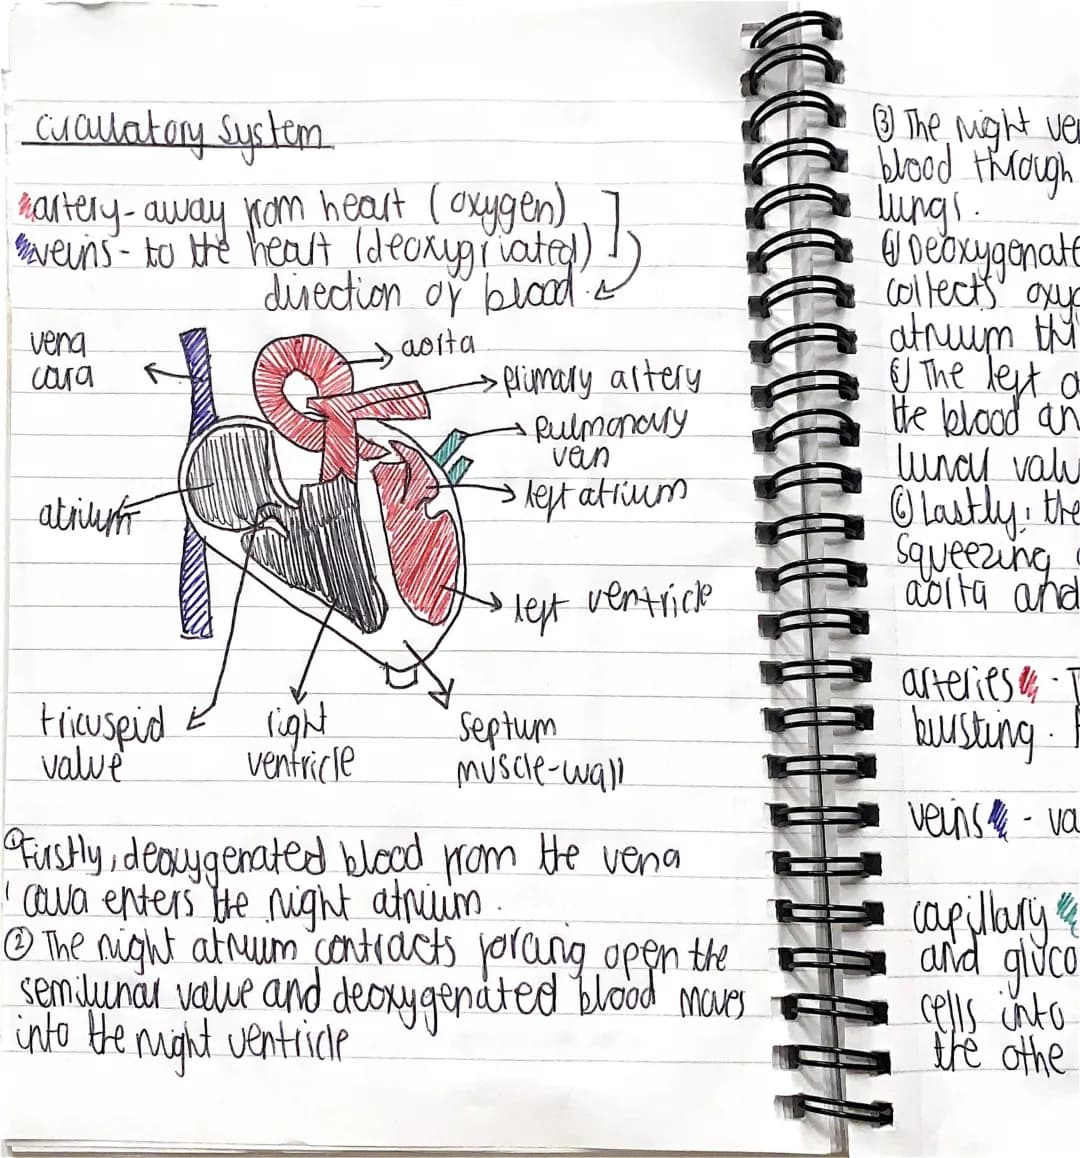 circulatory system
artery - away from heart (oxygen)
veins - to the heart (deoxygriated)
direction of blood.
vena cava
aorta
primary artery
pulmonary vein
atrium
left atrium
left ventricle
tricuspid valve
right ventricle
septum muscle-wall
① Firstly, deoxygenated blood from the vena
cava enters the right atrium.
② The right atrium contracts forcing open the
semilunar valve and deoxygenated blood moves
into the right ventricle
③ The right ve
blood through
lungs.
④ Deoxygenate
collects oxyg
atrium th
⑤ The left a
the blood an
lunar valv
⑥ Lastly, the
squeezing
aorta and
arteries - T
bursting.
veins - va
capillary
and gluco
cells into
the othe